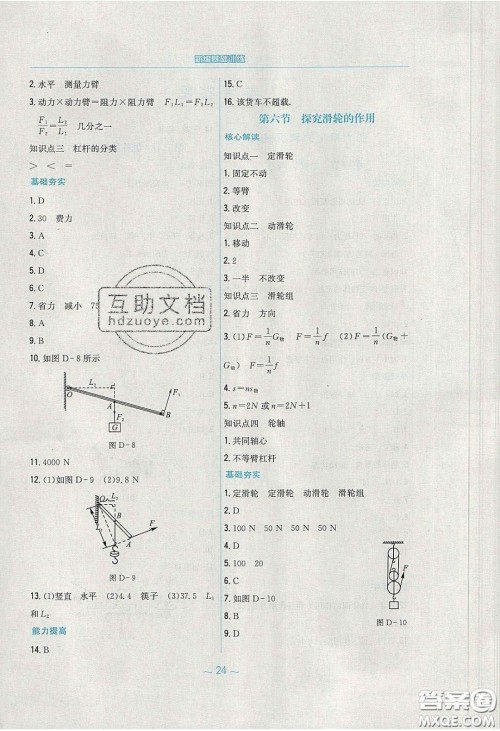 2. 水平　测量力臂
3. 动力×动力臂=阻力×阻力臂　F₁L₁=F₂L₂
F₁/F₂=L₂/L₁　几分之一
知识点三　杠杆的分类
＞　＜　=
基础夯实
1. D
2. 30　费力
3. A
4. C
5. D
6. D
7. 省力　减小　75
8. A
9. B
10. 如图 D-8 所示
O　L₁　A　F₂　G　B　F₁
图 D-8
11. 4000 N
12. (1)如图 D-9　(2)9.8 N
O　L₂　B　A　F
图 D-9
13. (1)竖直　水平　(2)4.4　筷子　(3)37.5　L₁
和L₂
能力提高
14. B
15. C
16. 该货车不超载.
第六节　探究滑轮的作用
核心解读
知识点一　定滑轮
1. 固定不动
2. 等臂
3. 改变
知识点二　动滑轮
1. 移动
2. 2
3. 一半　不改变
知识点三　滑轮组
2. 省力　方向
3. (1)F=1/n G物　F=1/n f　(2)F=1/n(G物+
G动)　F=1/n f
4. s=ns物
5. n=2N 或 n=2N+1
知识点四　轮轴
1. 共同轴心
2. 不等臂杠杆
基础夯实
1. 定滑轮　定滑轮　动滑轮　滑轮组
2. D
3. 100 N　50 N　50 N
4. D
5. 100　20
6. C
7. 如图 D-10
8. B
9. D
图 D-10
～ 24 ～
互助文档
hdzuoye.com
答案圈
MXQE.COM